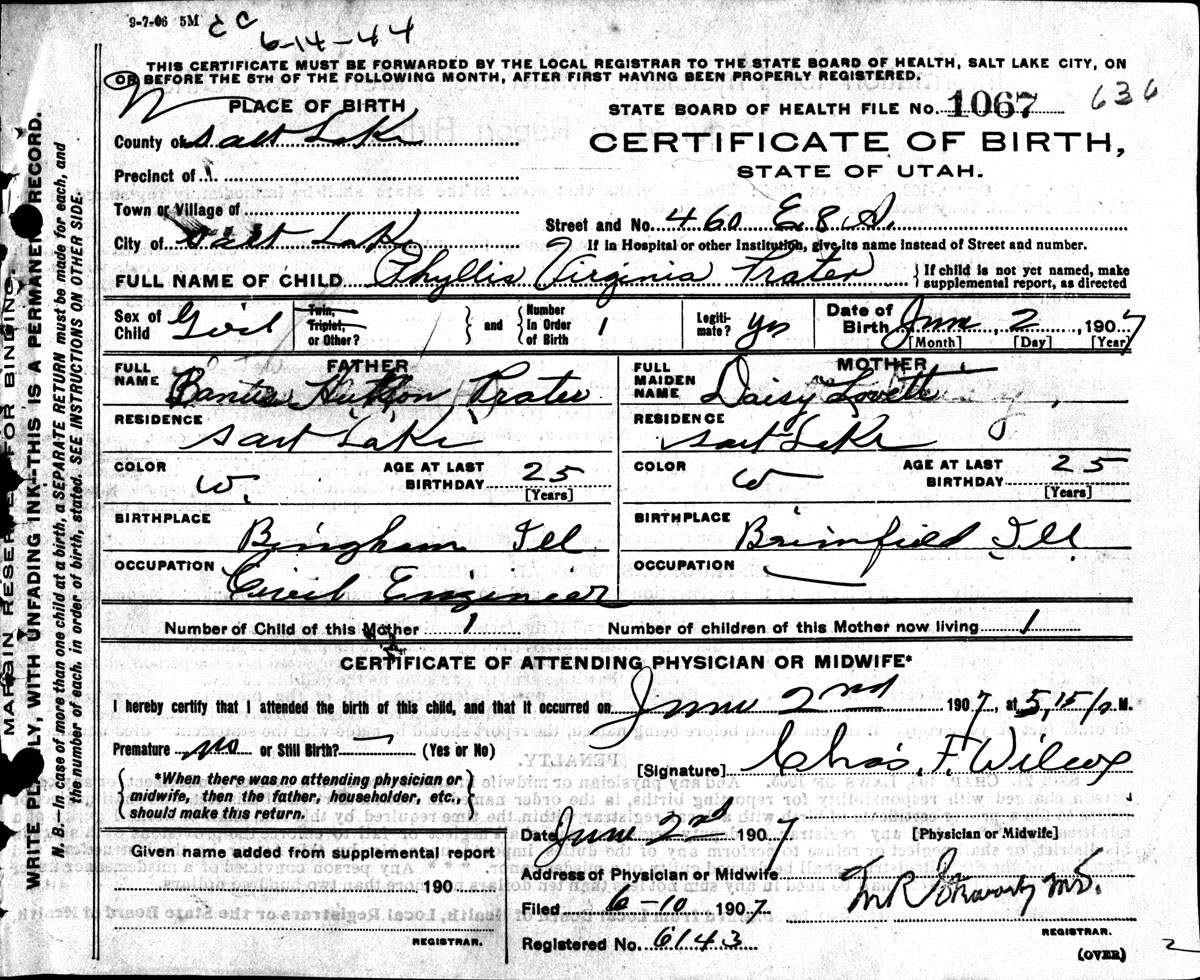 9-7-06 5M
6-14-44
THIS CERTIFICATE MUST BE FORWARDED BY THE LOCAL REGISTRAR TO THE STATE BOARD OF HEALTH, SALT LAKE CITY, ON
OR BEFORE THE 5TH OF THE FOLLOWING MONTH, AFTER FIRST HAVING BEEN PROPERLY REGISTERED.
PLACE OF BIRTH
STATE BOARD OF HEALTH FILE No. 1067 636
County of Salt Lake
CERTIFICATE OF BIRTH,
STATE OF UTAH.
Precinct of
Town or Village of
Street and No. 460 E. 8 S.
City of Salt Lake
If in Hospital or other Institution, give its name instead of Street and number.
FULL NAME OF CHILD Phyllis Virginia Prater
If child is not yet named, make
supplemental report, as directed
Sex of Child Girl
Twin, Triplet, or Other?
and
Number In Order of Birth 1
Legiti-mate? Yes
Date of Birth June 2, 1907
[Month] [Day] [Year]
FATHER
FULL NAME Prater
RESIDENCE Salt Lake
COLOR W.
AGE AT LAST BIRTHDAY 25
[Years]
BIRTHPLACE Bingham Ill
OCCUPATION Civil Engineer
MOTHER
FULL MAIDEN NAME Daisy Lovett
RESIDENCE Salt Lake
COLOR W
AGE AT LAST BIRTHDAY 25
[Years]
BIRTHPLACE Brimfield Ill
OCCUPATION
Number of Child of this Mother 1
Number of children of this Mother now living 1
CERTIFICATE OF ATTENDING PHYSICIAN OR MIDWIFE*
I hereby certify that I attended the birth of this child, and that it occurred on June 2nd 1907, at 5,15 P. M.
Premature no or Still Birth? — (Yes or No)
[Signature] Chas. F. Wilcox
*When there was no attending physician or
midwife, then the father, householder, etc.,
should make this return.
Date June 2nd 1907
[Physician or Midwife]
Given name added from supplemental report
190
REGISTRAR.
Address of Physician or Midwife
Filed 6-10 1907
M.D.
REGISTRAR.
Registered No. 6143
(OVER)
MARGIN RESERVED FOR BINDING.
WRITE PLAINLY, WITH UNFADING INK—THIS IS A PERMANENT RECORD.
N. B.—In case of more than one child at a birth, a SEPARATE RETURN must be made for each, and
the number of each, in order of birth, stated. SEE INSTRUCTIONS ON OTHER SIDE.